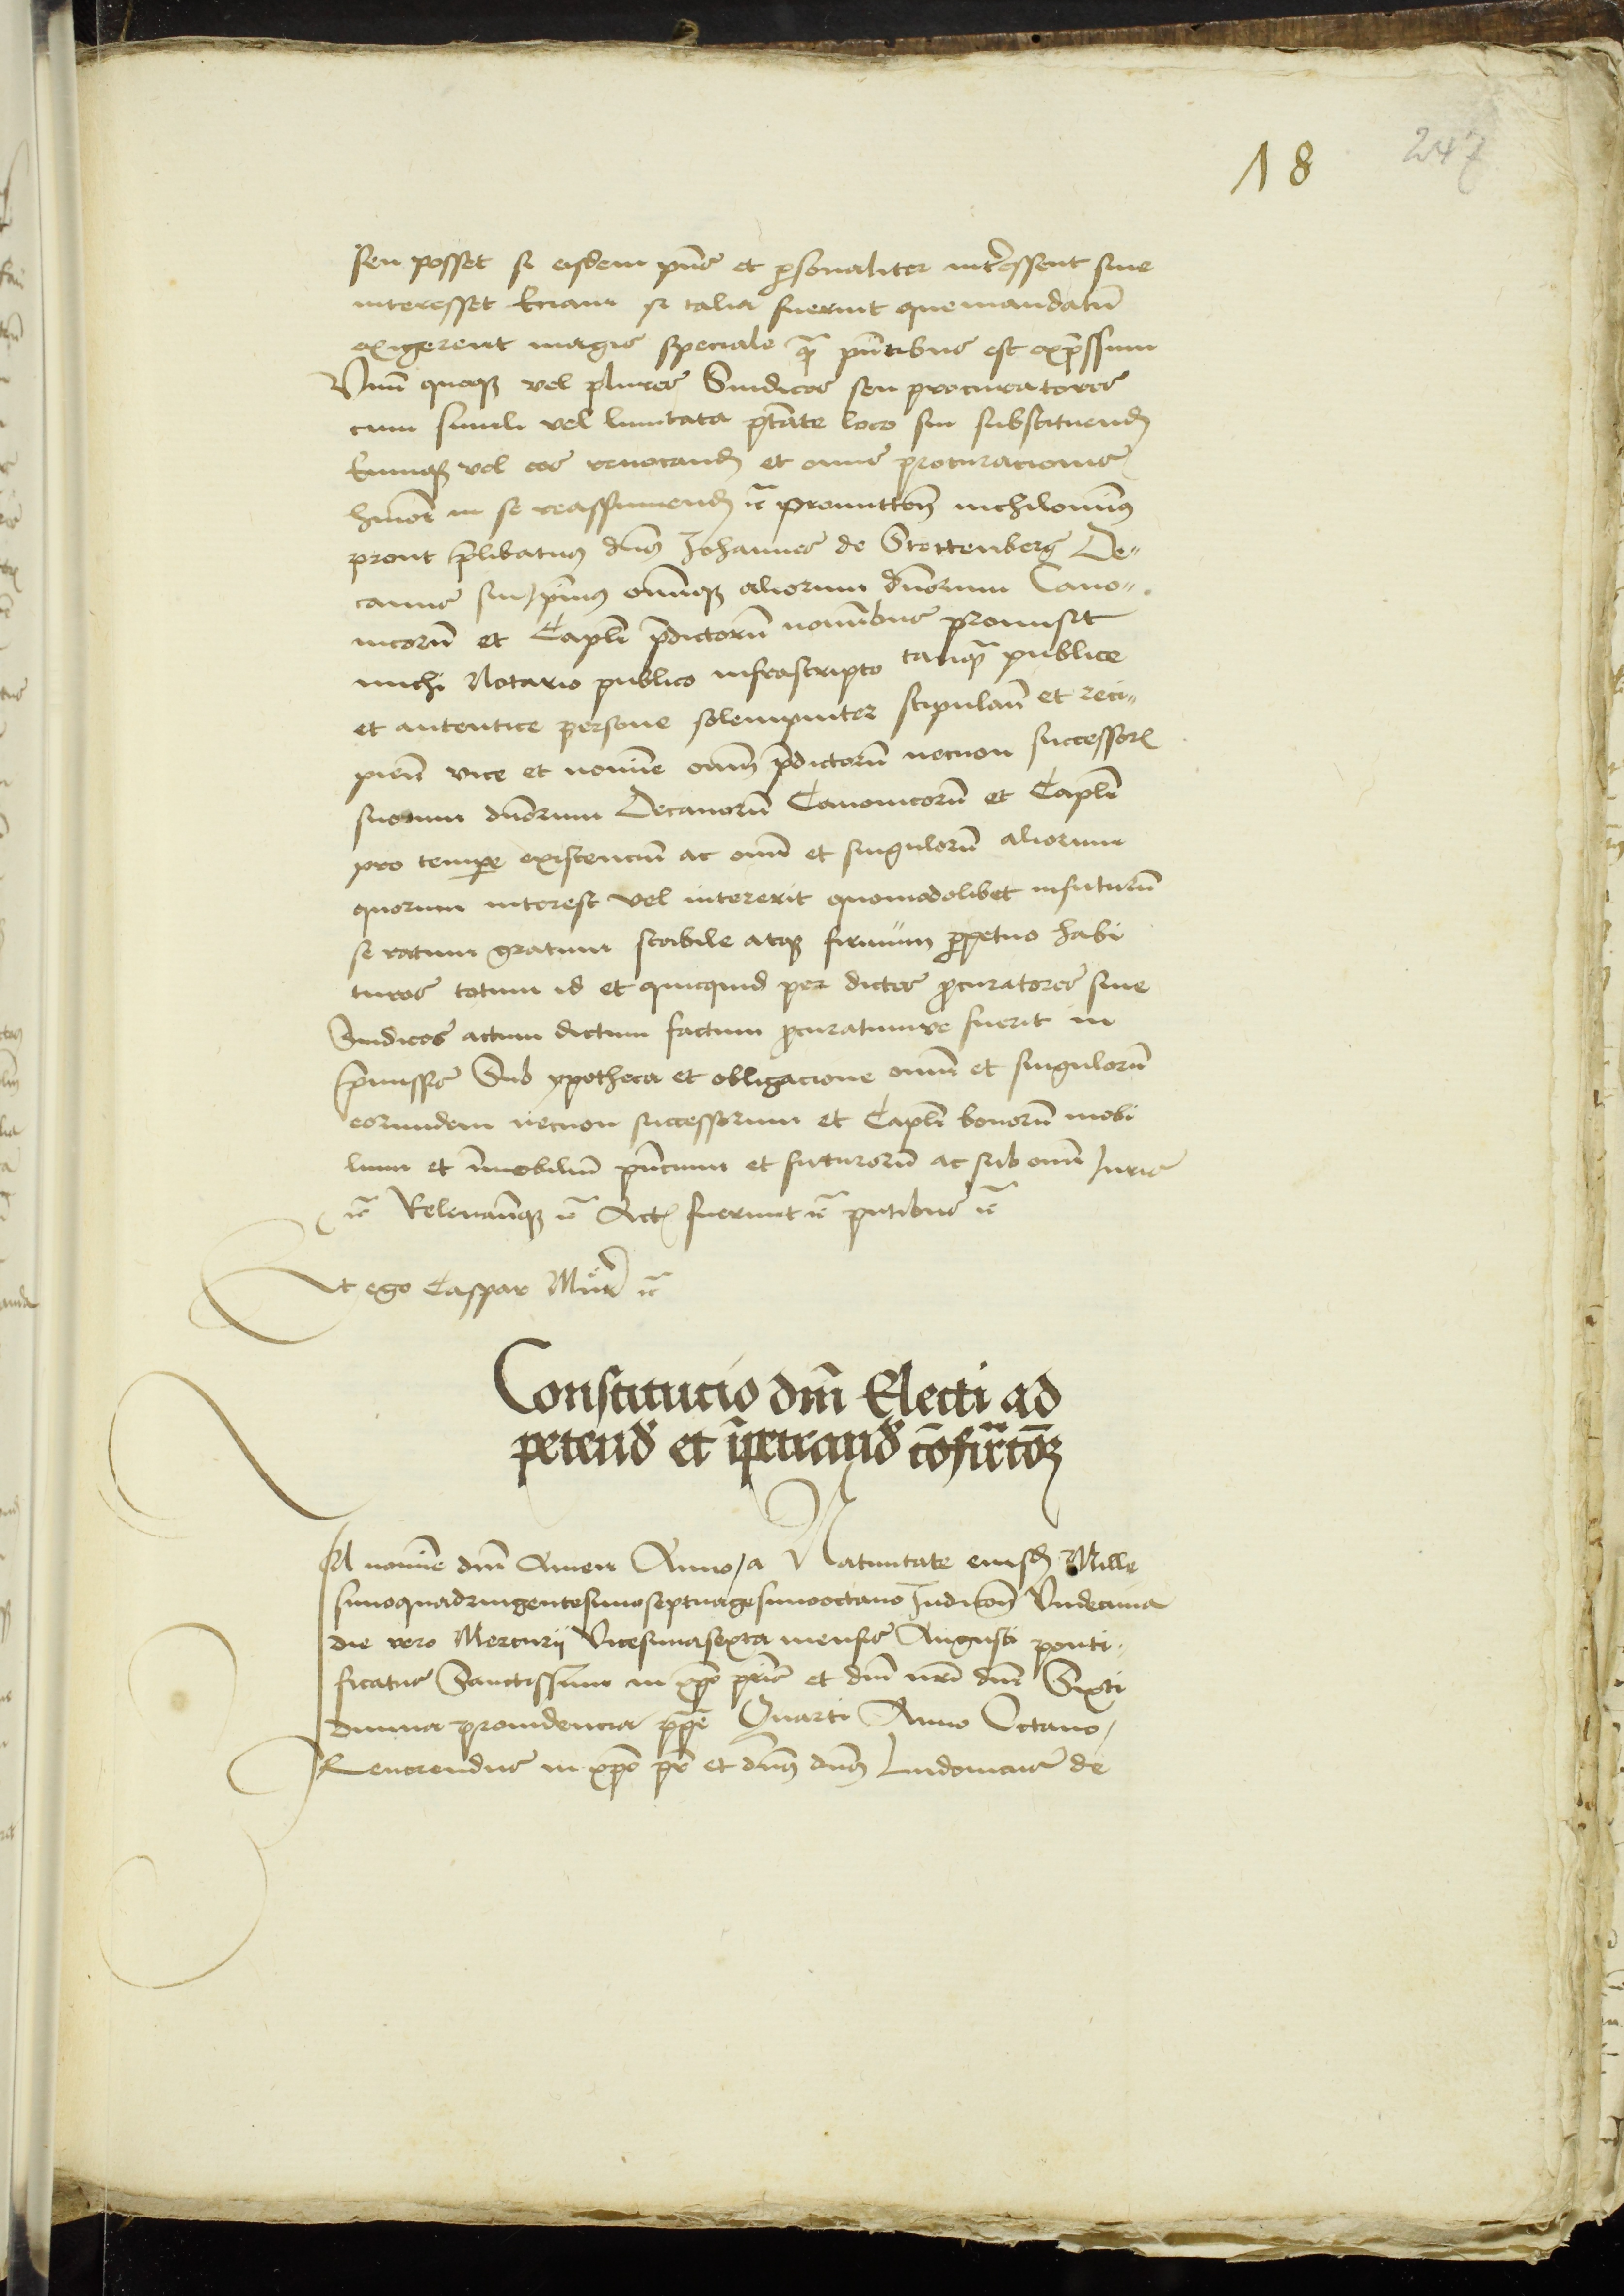 18 247
seu posset si eisdem pñs et ꝑsonaliter int͛essent siue
interesset Eciam si talia fuerint que mandatū
exigerent magis speciale qͣ pñtibus est exp̄ssum
Vnū quoqȝ vel plures Sindicos seu procuratores
cum simili vel limitata ptāte loco sui substituend̄
Eumqȝ vel eos reuocand̄ et onus procuracionis
hmōi in se reassumend̄ ⁊c̄ promitteñ nichilominꝰ
prout p̄libatus dñs Johannes de Stettenberg De-
canus sui ip̄ius om̄iqȝ aliorum dn̄orum Cano-
nicorū et Capłi p̄dictorū nominibus promisit
michi Notario publico infrascripto tanqͣ publice
et autentice persone solempniter stipulañ et reci-
pieñ vice et nomīe om̄i p̄dictorū necnon successoꝝ
suorum dn̄orum Decanorū Canonicorū et Capłi
pro tempe existenciū ac om̄i et singulorū aliorum
quorum interest vel intererit quomodolibet infuturū
se ratum gratum stabile atqȝ firmum ꝑpetuo habi
turos totum id et quicquid per dictos ꝓcuratores siue
Sindicos actum dictum factum ꝓcuratumve fuerit in
p̄missis Sub ypotheca et obligacione om̄i et singulorū
eorundem necnon successorum et Capłi bonorū mobi
lium et īmobiliū pn̄cium et futurorū ac sub omī Juris
⁊c̄ Releuañqȝ ⁊c̄ Actꝭ fuerunt ⁊c̄ pn̄tibus ⁊c̄
Et ego Caspar Mür͛ ⁊c̄
Constitucio dnī Electi ad
petend̄ et īpetrand̄ cōfirͣcōȝ
In nomīe dnī Amen Anno a Natiuitate eiusd̄ Mille
simoquadringentesimoseptuagesimooctauo Indicōñ Vndecima
die vero Mercurij Vicesimasexta mensis Augusti ponti-
ficatus Sanctissimi in xp̄o pr̄is et dnī nrī dnī Sixti
diuina prouidencia pp̄e Quarti Anno Octauo
Reuerendus in xp̄o pr̄ et dn̄s dn̄s Ludowicus de